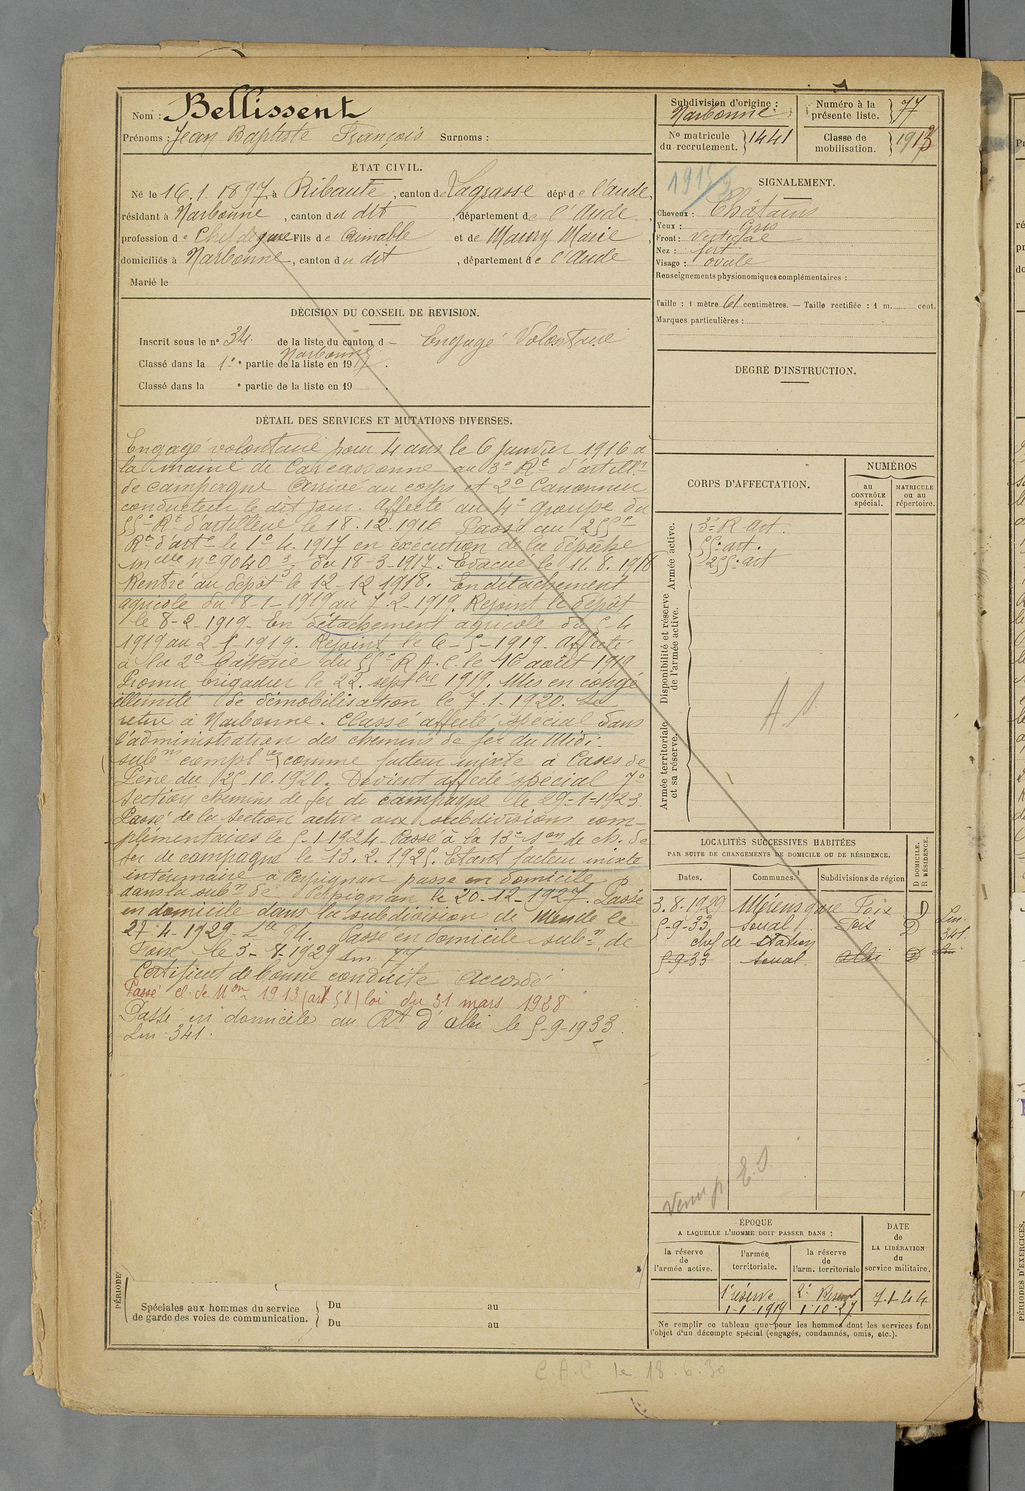 Nom : Bellissent
Prénoms : Jean Baptiste François Surnoms :
ÉTAT CIVIL.
Né le 16.1.1897, à Ribaute, canton de Lagrasse, dépt de l'Aude,
résidant à Narbonne, canton du dit, département de l'Aude,
profession de Chef de gare Fils de Aimable et de Maury Marie
domiciliés à Narbonne, canton du dit, département de l'Aude
Marié le
DÉCISION DU CONSEIL DE REVISION.
Inscrit sous le no 34 de la liste du canton d Engagé Volontaire
Narbonne
Classé dans la 1e partie de la liste en 1917.
Classé dans la e partie de la liste en 19
DÉTAIL DES SERVICES ET MUTATIONS DIVERSES.
Engagé volontaire pour 4 ans le 6 janvier 1916 à
la mairie de Carcassonne au 3e Rt d'artie
de campagne Arrivé au corps et 2e Canonnier
conducteur le dit jour. Affecté au 4e groupe du
55e Rt d'artillerie le 18.12.1916 Passé au 255e
Rt d'artie le 1e 4.1917 en exécution de la dépêche
mlle no 9040 du 18-3-1917. Evacué le 11.8.1918
Rentré au dépôt le 12-12 1918. En détachement
agricole du 8-1-1919 au 7-2-1919. Rejoint le dépôt
le 8-2-1919. En détachement agricole du 5-4
1919 au 2-5-1919. Rejoint le 6-5-1919. Affecté
à la 2e batterie du 55e R.A.C. le 16 août 1919
Promu brigadier le 22 septbre 1919. Mis en congé
illimité de démobilisation le 7.1.1920. Se
retire à Narbonne. Classé affecté spécial dans
l'administration des chemins de fer du Midi
subns complres comme facteur mixte à Cases de
Pene du 25.10.1920. Devient affecté spécial 7e
section chemins de fer de campagne le 29-1-1923
Passé de la section active aux subdivisions com-
plémentaires le 5-1-1924. Passé à la 13e Son de ch. de
fer de campagne le 13.2.1925. Etant facteur mixte
intérimaire à Perpignan passe en domicile
dans la subn de Perpignan le 20-12-1927. Passé
en domicile dans la subdivision de Mende le
27-4-1929. Passé en domicile subn de
Foix le 3-8-1929 Lm 77
Certificat de bonne conduite accordé
Passé cl. de Mon 1913 (art 58) loi du 31 mars 1928
Passé en domicile au Rt d'Albi le 5-9-1933.
Lm 341.
PÉRIODE
Spéciales aux hommes du service
de garde des voies de communication.
Du au
Du au
Subdivision d'origine :
Narbonne
Numéro à la
présente liste. 77
No matricule
du recrutement. 1441
Classe de
mobilisation. 1913
SIGNALEMENT.
Cheveux : Châtains
Yeux : Gris
Front : Vertical
Nez : fort
Visage : ovale
Renseignements physionomiques complémentaires :
Taille : 1 mètre 61 centimètres. — Taille rectifiée : 1 m. cent.
Marques particulières :
DEGRÉ D'INSTRUCTION.
CORPS D'AFFECTATION.
NUMÉROS
au
CONTRÔLE
spécial.
MATRICULE
ou au
répertoire.
Armée active.
3e R. art.
55e art.
255e art
Disponibilité et réserve
de l'armée active.
Armée territoriale
et sa réserve.
A.S.
LOCALITÉS SUCCESSIVES HABITÉES
PAR SUITE DE CHANGEMENTS DE DOMICILE OU DE RÉSIDENCE.
D DOMICILE.
R RÉSIDENCE.
Dates. Communes. Subdivisions de région
3.8.1929 Mérens gare Foix D
5-9-33 Soual D
chef de station
5-9-33 Soual Albi D
Lm
341
ÉPOQUE
A LAQUELLE L'HOMME DOIT PASSER DANS :
DATE
de
LA LIBÉRATION
du
service militaire.
la réserve
de
l'armée active.
l'armée
territoriale.
la réserve
de
l'arm. territoriale
1e réserve
1-1-1919
1-10-27
7-1-44
Ne remplir ce tableau que pour les hommes dont les services font
l'objet d'un décompte spécial (engagés, condamnés, omis, etc.).
C.A.C. le 18.6.30
PÉRIODES D'EXERCICES.